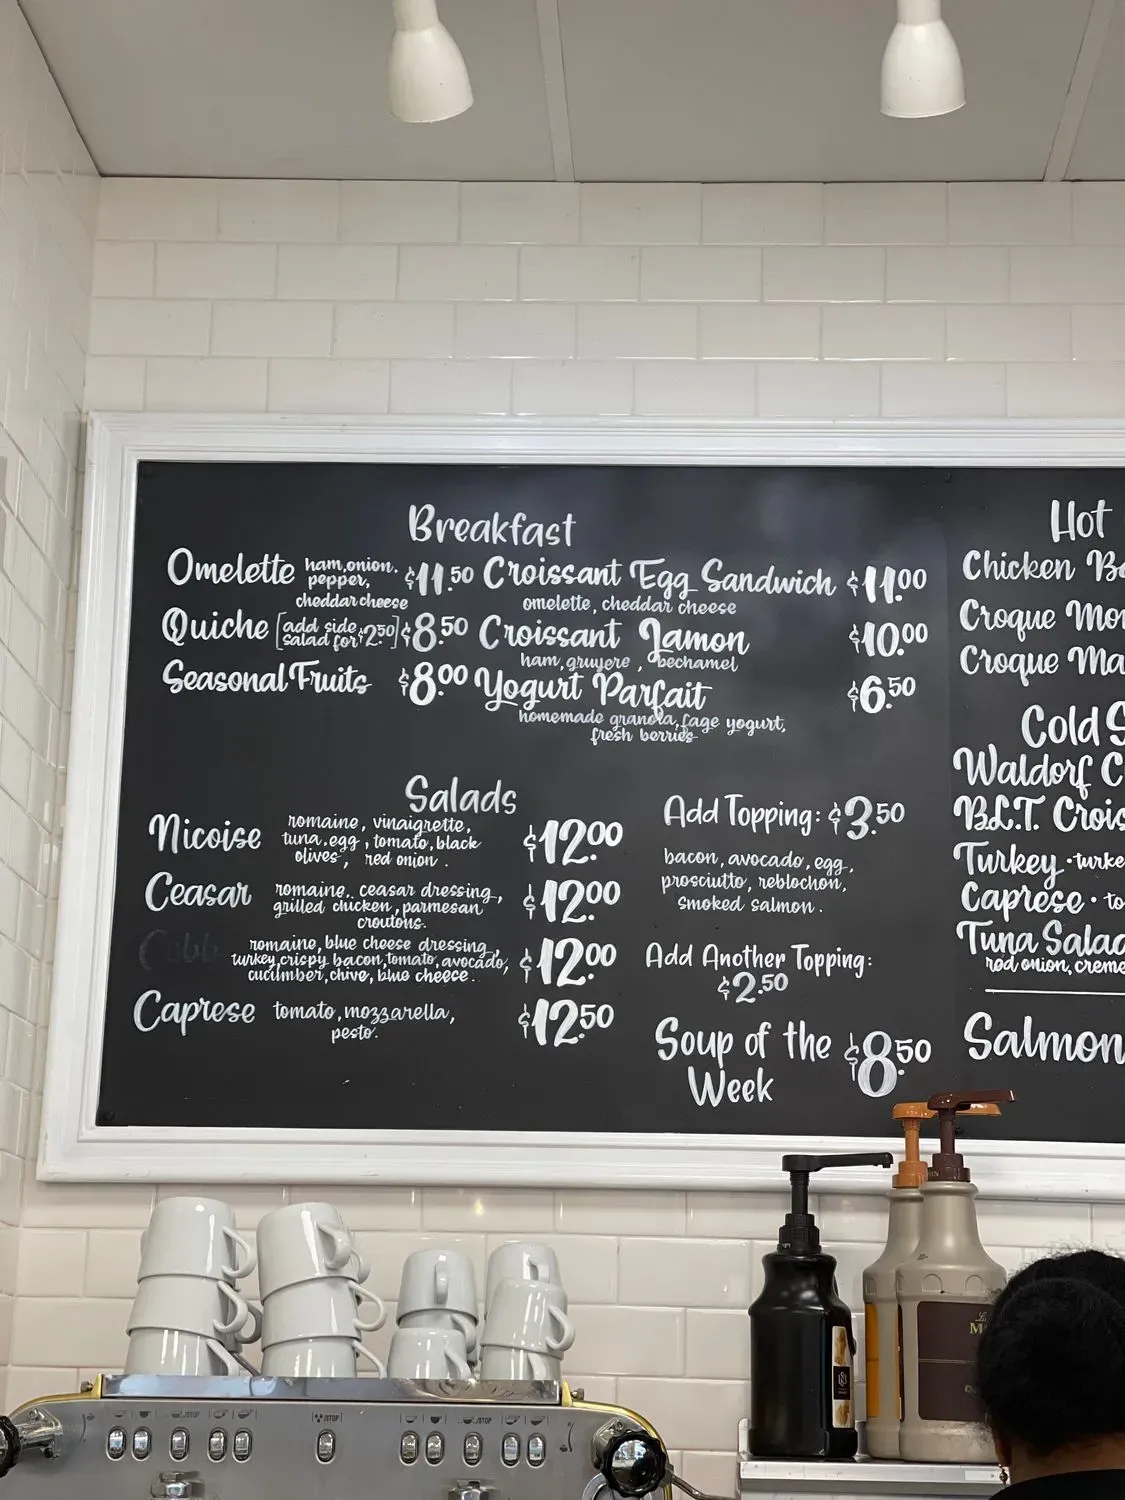 Breakfast
Omelette ham, onion, pepper, cheddar cheese $11.50
Quiche [add side salad for $2.50] $8.50
Seasonal Fruits $8.00
Croissant Egg Sandwich $11.00
omelette, cheddar cheese
Croissant Jamon $10.00
ham, gruyere, bechamel
Yogurt Parfait $6.50
homemade granola, fage yogurt,
fresh berries
Salads
Nicoise romaine, vinaigrette, tuna, egg, tomato, black olives, red onion. $12.00
Ceasar romaine, ceasar dressing, grilled chicken, parmesan croutons. $12.00
Cobb romaine, blue cheese dressing, turkey, crispy bacon, tomato, avocado, cucumber, chive, blue cheese. $12.00
Caprese tomato, mozzarella, pesto. $12.50
Add Topping: $3.50
bacon, avocado, egg,
prosciutto, reblochon,
smoked salmon.
Add Another Topping:
$2.50
Soup of the
Week $8.50
Hot
Chicken
Croque
Croque
Cold
Waldorf
B.L.T.
Turkey
Caprese
Tuna
red onion,
Salmon
/STOP
/STOP
/STOP